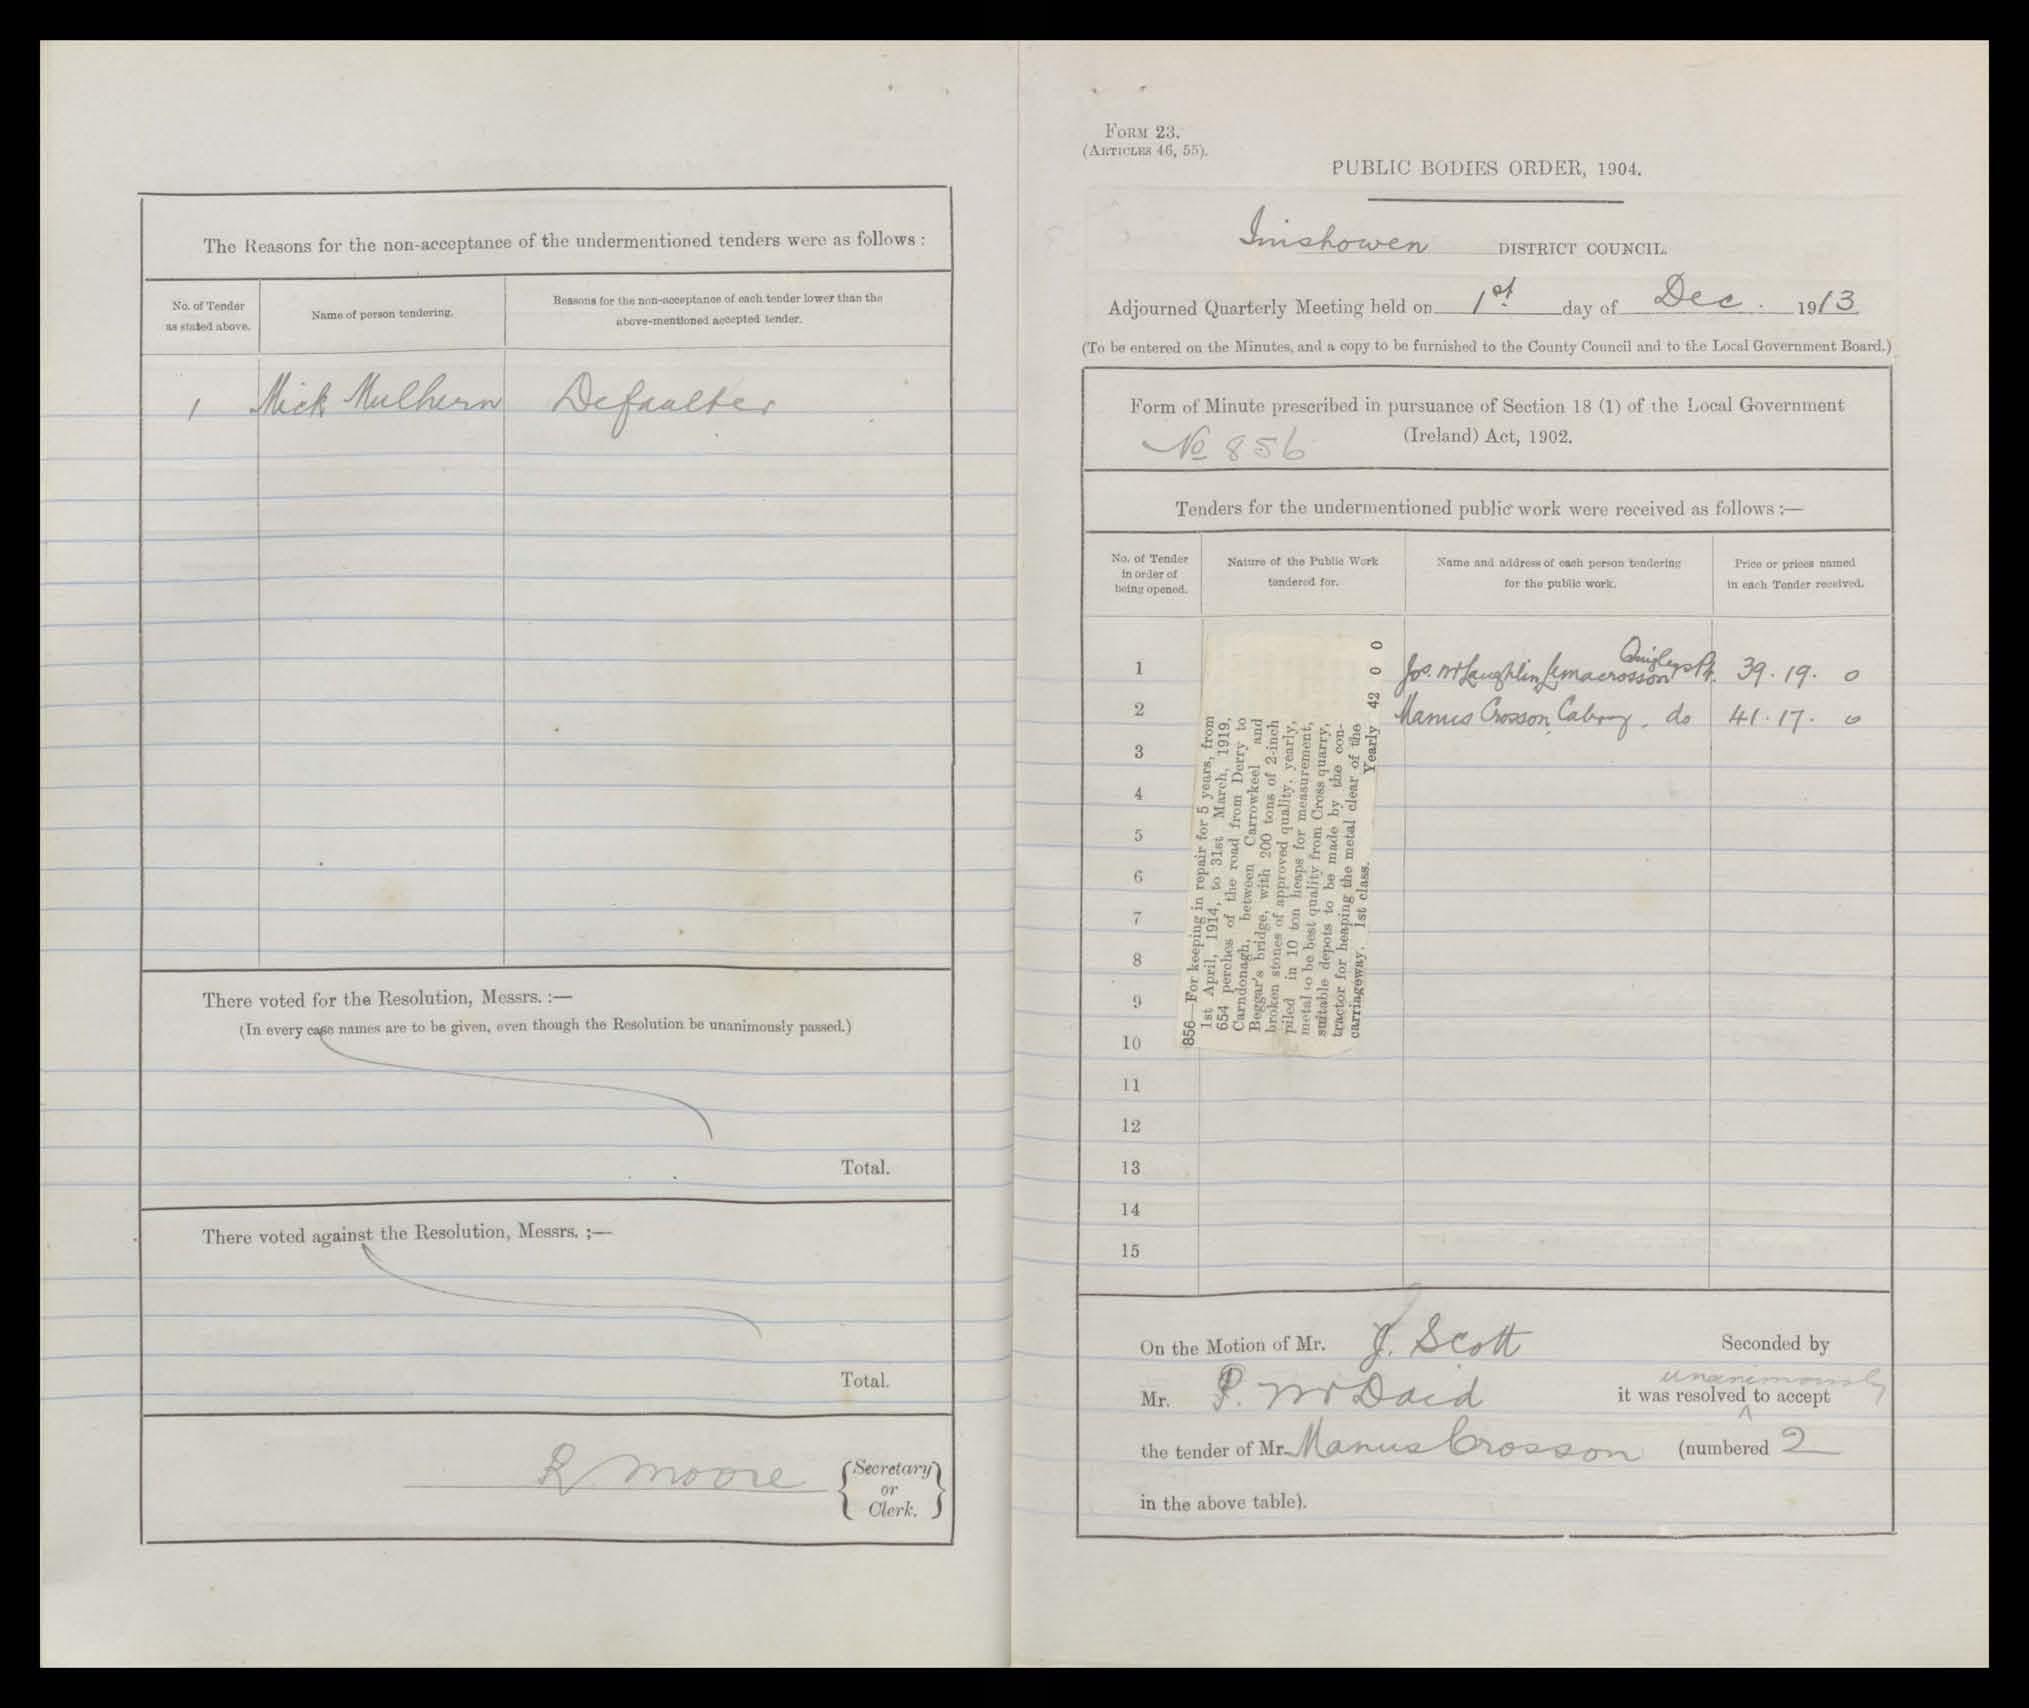 The Reasons for the non-acceptance of the undermentioned tenders were as follows :
No. of Tender
as stated above.
Name of person tendering.
Reasons for the non-acceptance of each tender lower than the
above-mentioned accepted tender.
1 Mick Mulhern Defaulter
There voted for the Resolution, Messrs. :—
(In every case names are to be given, even though the Resolution be unanimously passed.)
Total.
There voted against the Resolution, Messrs. ;—
Total.
R Moore
Secretary
or
Clerk.
Form 23.
(Articles 46, 55).
PUBLIC BODIES ORDER, 1904.
Inishowen DISTRICT COUNCIL.
Adjourned Quarterly Meeting held on 1st day of Dec. 1913
(To be entered on the Minutes, and a copy to be furnished to the County Council and to the Local Government Board.)
Form of Minute prescribed in pursuance of Section 18 (1) of the Local Government
(Ireland) Act, 1902.
No 856
Tenders for the undermentioned public work were received as follows :—
No. of Tender
in order of
being opened.
Nature of the Public Work
tendered for.
Name and address of each person tendering
for the public work.
Price or prices named
in each Tender received.
856—For keeping in repair for 5 years, from
1st April, 1914, to 31st March, 1919,
654 perches of the road from Derry to
Carndonagh, between Carrowkeel and
Beggar's bridge, with 200 tons of 2-inch
broken stones of approved quality, yearly,
piled in 10 ton heaps for measurement,
metal to be best quality from Cross quarry,
suitable depots to be made by the con-
tractor for heaping the metal clear of the
carriageway. 1st class. Yearly 42 0 0
Quigleys Pt.
1 Jos. McLaughlin 39 . 19 . 0
2 Manus Crosson, Cabry, do 41 . 17 . 0
3
4
5
6
7
8
9
10
11
12
13
14
15
On the Motion of Mr. J. Scott Seconded by
unanimously
Mr. P. McDaid it was resolved to accept
the tender of Mr. Manus Crosson (numbered 2
in the above table).